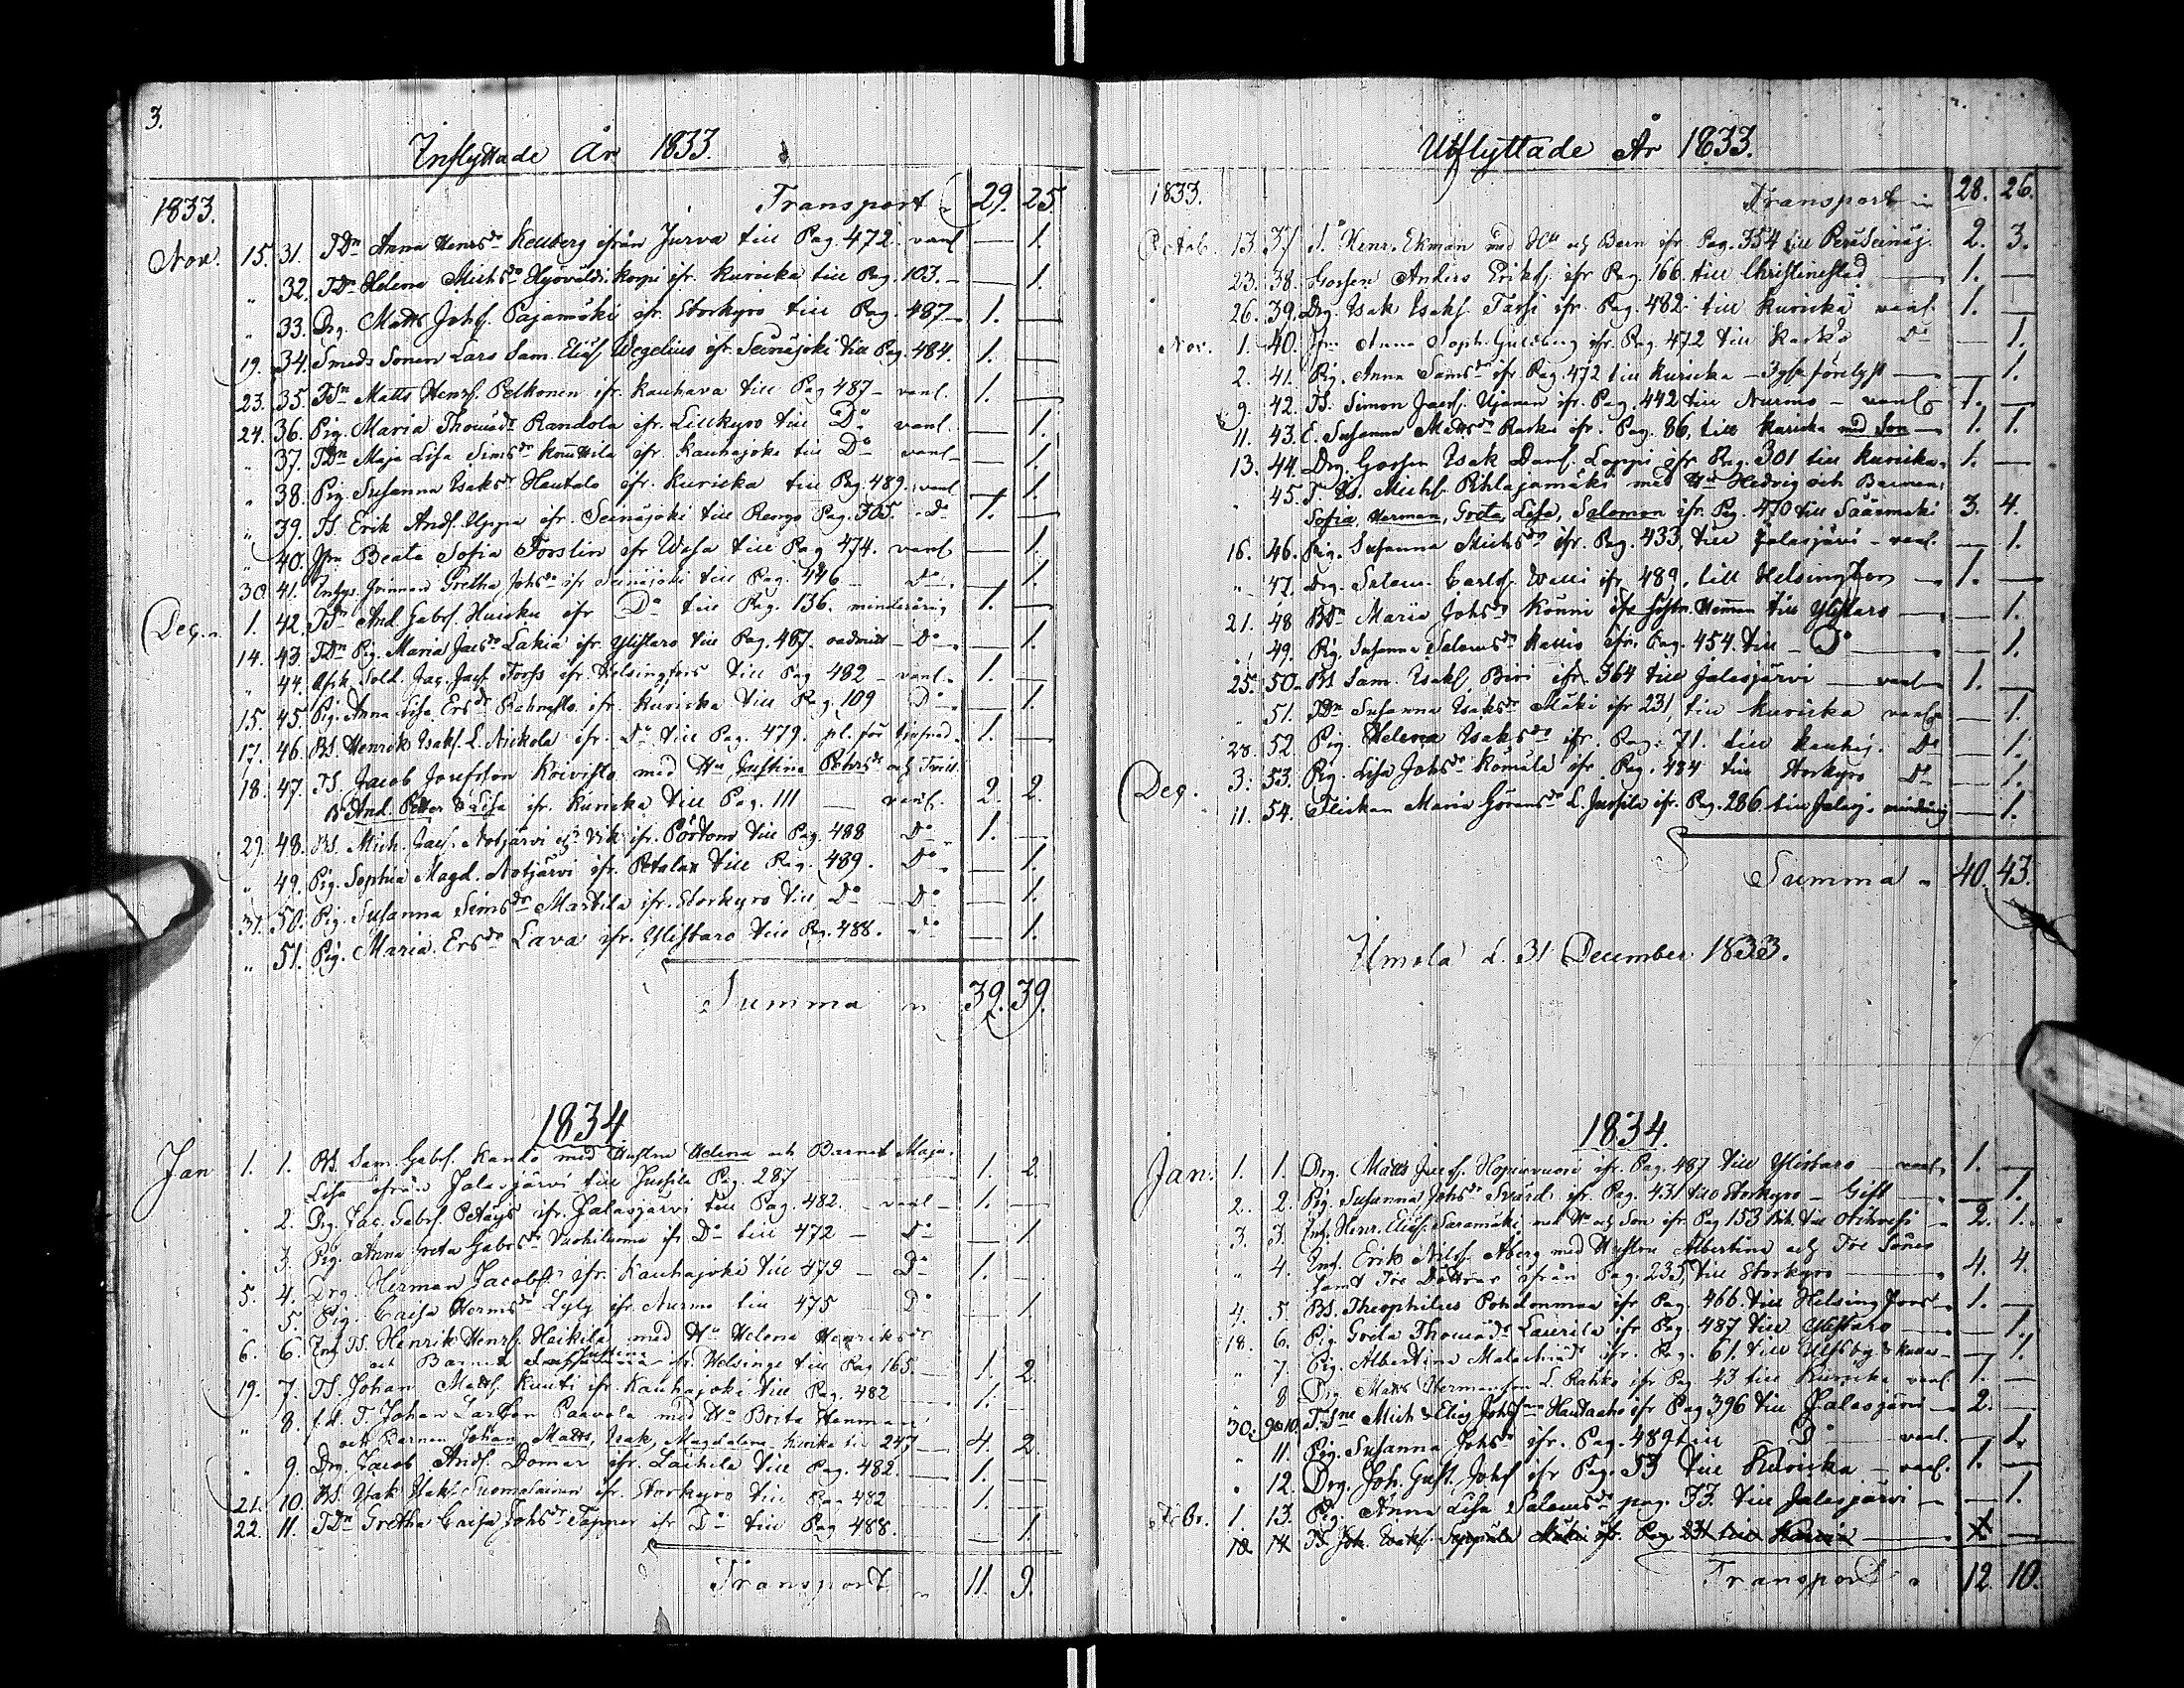 3.
Inflyttade År 1833.
1833. Transport 29. 25.
Nov. 15. 31. TDr Anna Henrsdr Kellberg ifrån Jurva till Pag. 472. vanl — 1.
" 32. TDr Helena Michsdr ifr. Kuricka till Pag. 103. — 1.
" 33. Drg. Matts Johss. Pajamäki ifr. Storkyro till Pag. 487 1. —
19. 34. Smeds Sonen Lars Sam. Eliass. Wegelius ifr. Seinäjoki till Pag. 484. 1. —
23. 35. TSn Matts Henrss. Pelkonen ifr. Kauhava till Pag 487 – vanl. 1. —
24. 36. Pig. Maria Thomædr Randola ifr. Lillkyro till Do vanl. — 1.
" 37. TDn Maja Lisa Simsdr ifr. Kauhajoki till Do vanl — 1.
" 38. Pig. Susanna Isaksdr Hautala ifr. Kuricka till Pag. 489. vanl — 1.
" 39. TS. Erik Andss. Uppa ifr. Seinäjoki till Rengo Pag. 305. Do 1. —
" 40. Jfrn Beata Sofia Forslin ifr Wasa till Pag 474. vanl — 1.
30. 41. Inhys. Qvinnan Gretha Johsdr ifr Seinäjoki till Pag. 446 – Do — 1.
Dec. 1. 42. TSn And. Gabrss. Huisku ifr Do till Pag. 136. minderårig 1. —
14. 43. TDn Pig. Maria Jacsdr Lakia ifr. Ylistaro till Pag. 487. – Do — 1.
" 44. Afsk. Sold. Jac. Jacss. Forss ifr. Helsingfors till Pag 482 – vanl. 1. —
15. 45. Pig. Anna Lisa Ersdr ifr. Kuricka till Pag. 109 Do — 1.
17. 46. BS. Henrik Isakss. L. Nickola ifr. Do till Pag. 479. 1. —
18. 47. TS. Jacob Josefsson Koivisto med Hu Justina Pehrsdr och
And. Petter & Lisa ifr. Kuricka till Pag. 111 — vanl. 2. 2.
29. 48. BS. Mich. Jacss. Notjärvi ifr. Pörtom till Pag. 488 Do 1. —
" 49. Pig. Sophia Magd. Notjärvi ifr. Petalax till Pag. 489. Do — 1.
31. 50. Pig. Susanna Simsdr Martila ifr. Storkyro till Do – Do — 1.
" 51. Pig. Maria Ersdr Lava ifr. Ylistaro till Pag. 488. Do — 1.
Summa 39. 39.
1834
Jan 1. 1. BS. Sam. Gabrss. Kando med Hustru Helena och Barnet Maja
Lisa ifrån Jalasjärvi till Jussila Pag. 287 1. 2.
2. Drg. Jac. Gabrss. Petäys ifr. Jalasjärvi till Pag. 482. – vanl – 1. —
3. Pig. Anna Greta Gabrsdr ifr Do till 472 – Do — 1
5. 4. Drg. Herman Jacobss. ifr. Kauhajoki till 479 – Do 1. —
" 5. Pig. Caisa Hermsdr Lyly ifr Nurmo till 475 Do — 1
6. 6. Inh TS. Henrik Henrss. Heikilä med Hu Helena Henriksdr
och Barnet Justina ifr. Helsinge till Pag 165. 1. 2.
19. 7. TS. Johan Mattss. Kuuti ifr. Kauhajoki till Pag. 482 1. —
" 8. f.d. T. Johan Larsson Paavola med Hu Brita
och Barnen Johan, Matts, Isak, Magdalena Kuricka till 247 4. 2.
" 9. Drg. Jacob Andss. Domar ifr. Laihela till Pag. 482. 1. —
21. 10. BS. Isak Isakss. Suomalainen ifr. Storkyro till Pag 482 1. —
22. 11. TDn Gretha Caisa Johsdr Tapper ifr Do till Pag 488. — 1.
Transport 11. 9.
Utflyttade År 1833.
1833. Transport 28. 26.
Octob. 13. 37 S. Henr. Ekman med Hu och Barn ifr. Pag. 354 till Peräseinäj. 2. 3.
23. 38. Gossen Anders Erikss. ifr Pag. 166. till Christinestad 1. —
26. 39. Drg. Isak Isakss. ifr. Pag. 482 till Kuricka vanl. 1. —
Nov. 1. 40. Jfrn Anna Soph. Guldberg ifr. Pag. 472 till Karkö Do — 1.
2. 41. Pig. Anna Samsdr ifr Pag. 472 till Kuricka – — 1.
9. 42. TS. Simon Jacss. Ujanen ifr. Pag. 442 till Nurmo – vanl 1. —
11. 43. E. Susanna Mattsdr ifr. Pag. 86, till Kuricka med Son 1. 1.
13. 44. Drg. Gossen Isak Danss. Loppi ifr Pag. 301 till Kuricka 1. —
" 45. T. Is. Michss. Pihlajamäki med Hu Hedvig och Barnen
Sofia, Herman, Greta, Lisa, Salomon ifr. Pag. 470 till Säämäki 3. 4.
16. 46. Pig. Susanna Michsdr ifr. Pag. 433, till Jalasjärvi – vanl. — 1.
" 47. Drg. Salom. Carlss. Welli ifr 489, till Helsingfors 1. —
21. 48 BDn Maria Johsdr Könni ifr till Ylistaro — 1.
" 49. Pig. Susanna Salomsdr Kallio ifr. Pag. 454. till Do — 1.
25. 50. BS Sam. Isakss. Biri ifr. 364 till Jalasjärvi — vanl 1. —
" 51. TDn Susanna Isaksdr Mäki ifr 231, till Kuricka vanl — 1.
28. 52. Pig. Helena Isaksdr ifr. Pag. 71. till Kauhaj. Do — 1.
Dec. 3. 53. Pig. Lisa Johsdr Komula ifr. Pag. 484 till Storkyro Do — 1.
11. 54. Flickan Maria Göransdr L. Jussila ifr. Pag. 286. till Jalasj. minderårig — 1.
Summa 40. 43.
Ilmola d. 31 December 1833.
1834.
Jan. 1. 1. Drg. Matts Jacss. Hopiavuori ifr. Pag. 487 till Ylistaro — vanl. 1. —
2. 2. Pig. Susanna Johsdr Svärd ifr. Pag. 431 till Storkyro – Gift — 1.
3. 3. Inh. Henr. Eliass. Saramäki med Hu och Son ifr. Pag 153 till Orihvesi 2. 1.
" 4. Inh. Erik Nilss. Åberg med Hustru Albertina och Tre Söner
samt Tre Döttrar ifrån Pag. 235, till Storkyro 4. 4.
4. 5. BS. Theophilus Pohdonmaa ifr Pag. 466. till Helsingfors 1. —
18. 6. Pig Greta Thomædr Laurila ifr Pag. 487 till Ylistaro — 1.
" 7. Pig. Albertina Malachiædr ifr. Pag. 61. till Ulfsby — 1.
8 Drg. Matts Hermansson L. Rahko ifr Pag. 43 till Kuricka vanl. 1. —
30. 9 & 10. T.Sne Mich & Elias Johssner Hautaaho ifr Pag 396 till Jalasjärvi 2. —
" 11. Pig. Susanna Johsdr ifr. Pag. 489 till Do vanl. — 1.
" 12. Drg. Joh. Gust. Johss ifr Pag. 53 till Kuricka – vanl. 1. —
Febr. 1 13. Pig. Anna Lisa Salomsdr pag. 33. till Jalasjärvi — 1.
18 14 TS Joh. Isakss. Seppälä Mäki ifr. Pag. 231 till Kauria 1 —
Transport 12. 10.